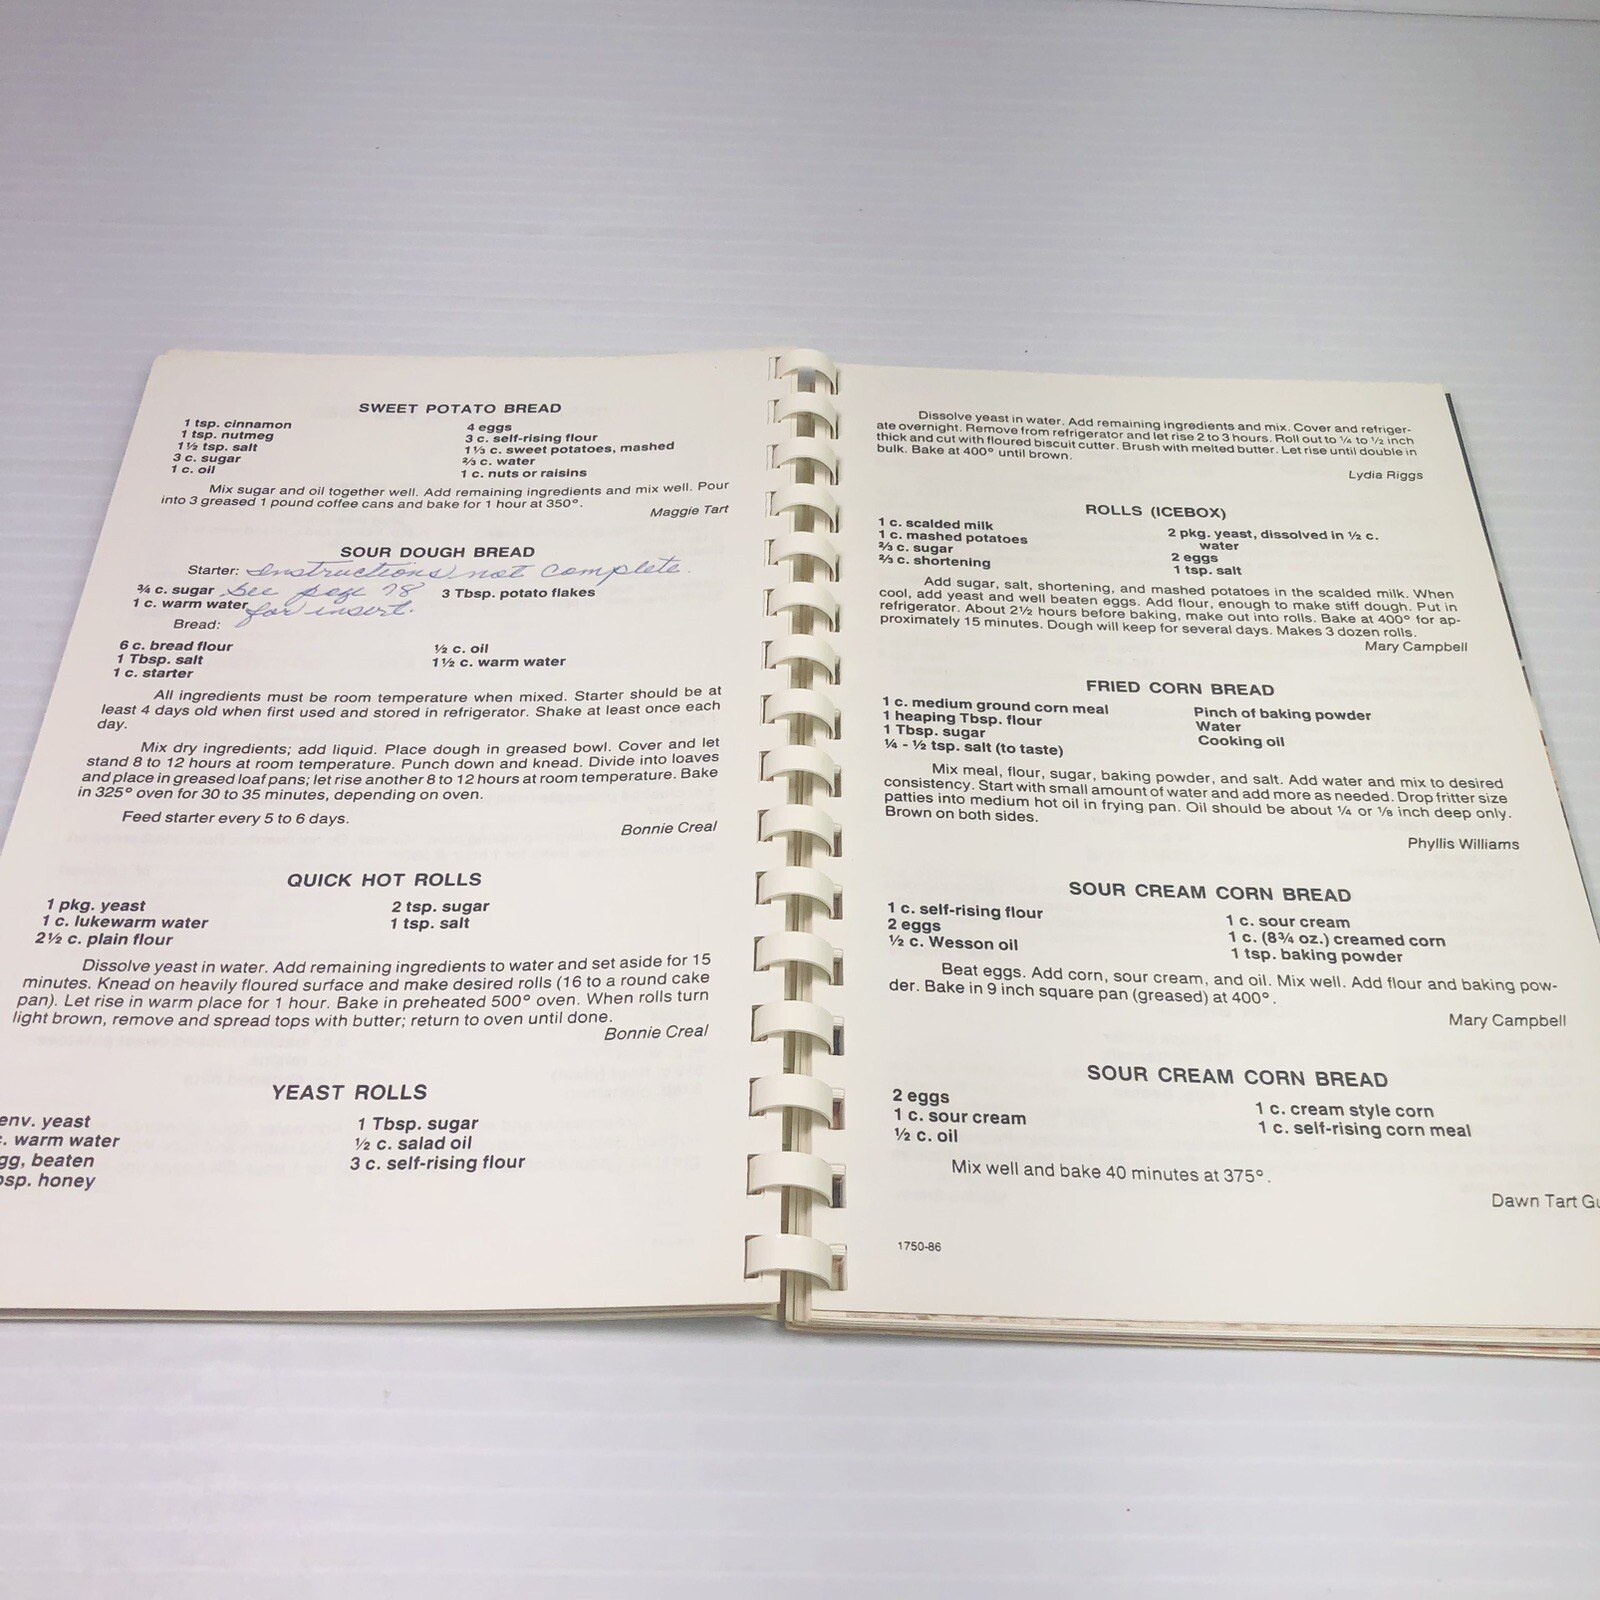 SWEET POTATO BREAD
1 tsp. cinnamon
1 tsp. nutmeg
1½ tsp. salt
3 c. sugar
1 c. oil
4 eggs
3 c. self-rising flour
1⅓ c. sweet potatoes, mashed
⅔ c. water
1 c. nuts or raisins
Mix sugar and oil together well. Add remaining ingredients and mix well. Pour
into 3 greased 1 pound coffee cans and bake for 1 hour at 350°.
Maggie Tart
SOUR DOUGH BREAD
Starter: Instructions not complete.
See page 78
for insert.
¾ c. sugar
1 c. warm water
3 Tbsp. potato flakes
Bread:
6 c. bread flour
1 Tbsp. salt
1 c. starter
½ c. oil
1½ c. warm water
All ingredients must be room temperature when mixed. Starter should be at
least 4 days old when first used and stored in refrigerator. Shake at least once each
day.
Mix dry ingredients; add liquid. Place dough in greased bowl. Cover and let
stand 8 to 12 hours at room temperature. Punch down and knead. Divide into loaves
and place in greased loaf pans; let rise another 8 to 12 hours at room temperature. Bake
in 325° oven for 30 to 35 minutes, depending on oven.
Feed starter every 5 to 6 days.
Bonnie Creal
QUICK HOT ROLLS
1 pkg. yeast
1 c. lukewarm water
2½ c. plain flour
2 tsp. sugar
1 tsp. salt
Dissolve yeast in water. Add remaining ingredients to water and set aside for 15
minutes. Knead on heavily floured surface and make desired rolls (16 to a round cake
pan). Let rise in warm place for 1 hour. Bake in preheated 500° oven. When rolls turn
light brown, remove and spread tops with butter; return to oven until done.
Bonnie Creal
YEAST ROLLS
env. yeast
c. warm water
gg, beaten
bsp. honey
1 Tbsp. sugar
½ c. salad oil
3 c. self-rising flour
Dissolve yeast in water. Add remaining ingredients and mix. Cover and refriger-
ate overnight. Remove from refrigerator and let rise 2 to 3 hours. Roll out to ¼ to ½ inch
thick and cut with floured biscuit cutter. Brush with melted butter. Let rise until double in
bulk. Bake at 400° until brown.
Lydia Riggs
ROLLS (ICEBOX)
1 c. scalded milk
1 c. mashed potatoes
⅔ c. sugar
⅔ c. shortening
2 pkg. yeast, dissolved in ½ c.
water
2 eggs
1 tsp. salt
Add sugar, salt, shortening, and mashed potatoes in the scalded milk. When
cool, add yeast and well beaten eggs. Add flour, enough to make stiff dough. Put in
refrigerator. About 2½ hours before baking, make out into rolls. Bake at 400° for ap-
proximately 15 minutes. Dough will keep for several days. Makes 3 dozen rolls.
Mary Campbell
FRIED CORN BREAD
1 c. medium ground corn meal
1 heaping Tbsp. flour
1 Tbsp. sugar
¼ - ½ tsp. salt (to taste)
Pinch of baking powder
Water
Cooking oil
Mix meal, flour, sugar, baking powder, and salt. Add water and mix to desired
consistency. Start with small amount of water and add more as needed. Drop fritter size
patties into medium hot oil in frying pan. Oil should be about ¼ or ⅛ inch deep only.
Brown on both sides.
Phyllis Williams
SOUR CREAM CORN BREAD
1 c. self-rising flour
2 eggs
½ c. Wesson oil
1 c. sour cream
1 c. (8¾ oz.) creamed corn
1 tsp. baking powder
Beat eggs. Add corn, sour cream, and oil. Mix well. Add flour and baking pow-
der. Bake in 9 inch square pan (greased) at 400°.
Mary Campbell
SOUR CREAM CORN BREAD
2 eggs
1 c. sour cream
½ c. oil
1 c. cream style corn
1 c. self-rising corn meal
Mix well and bake 40 minutes at 375°.
Dawn Tart Gu
1750-86